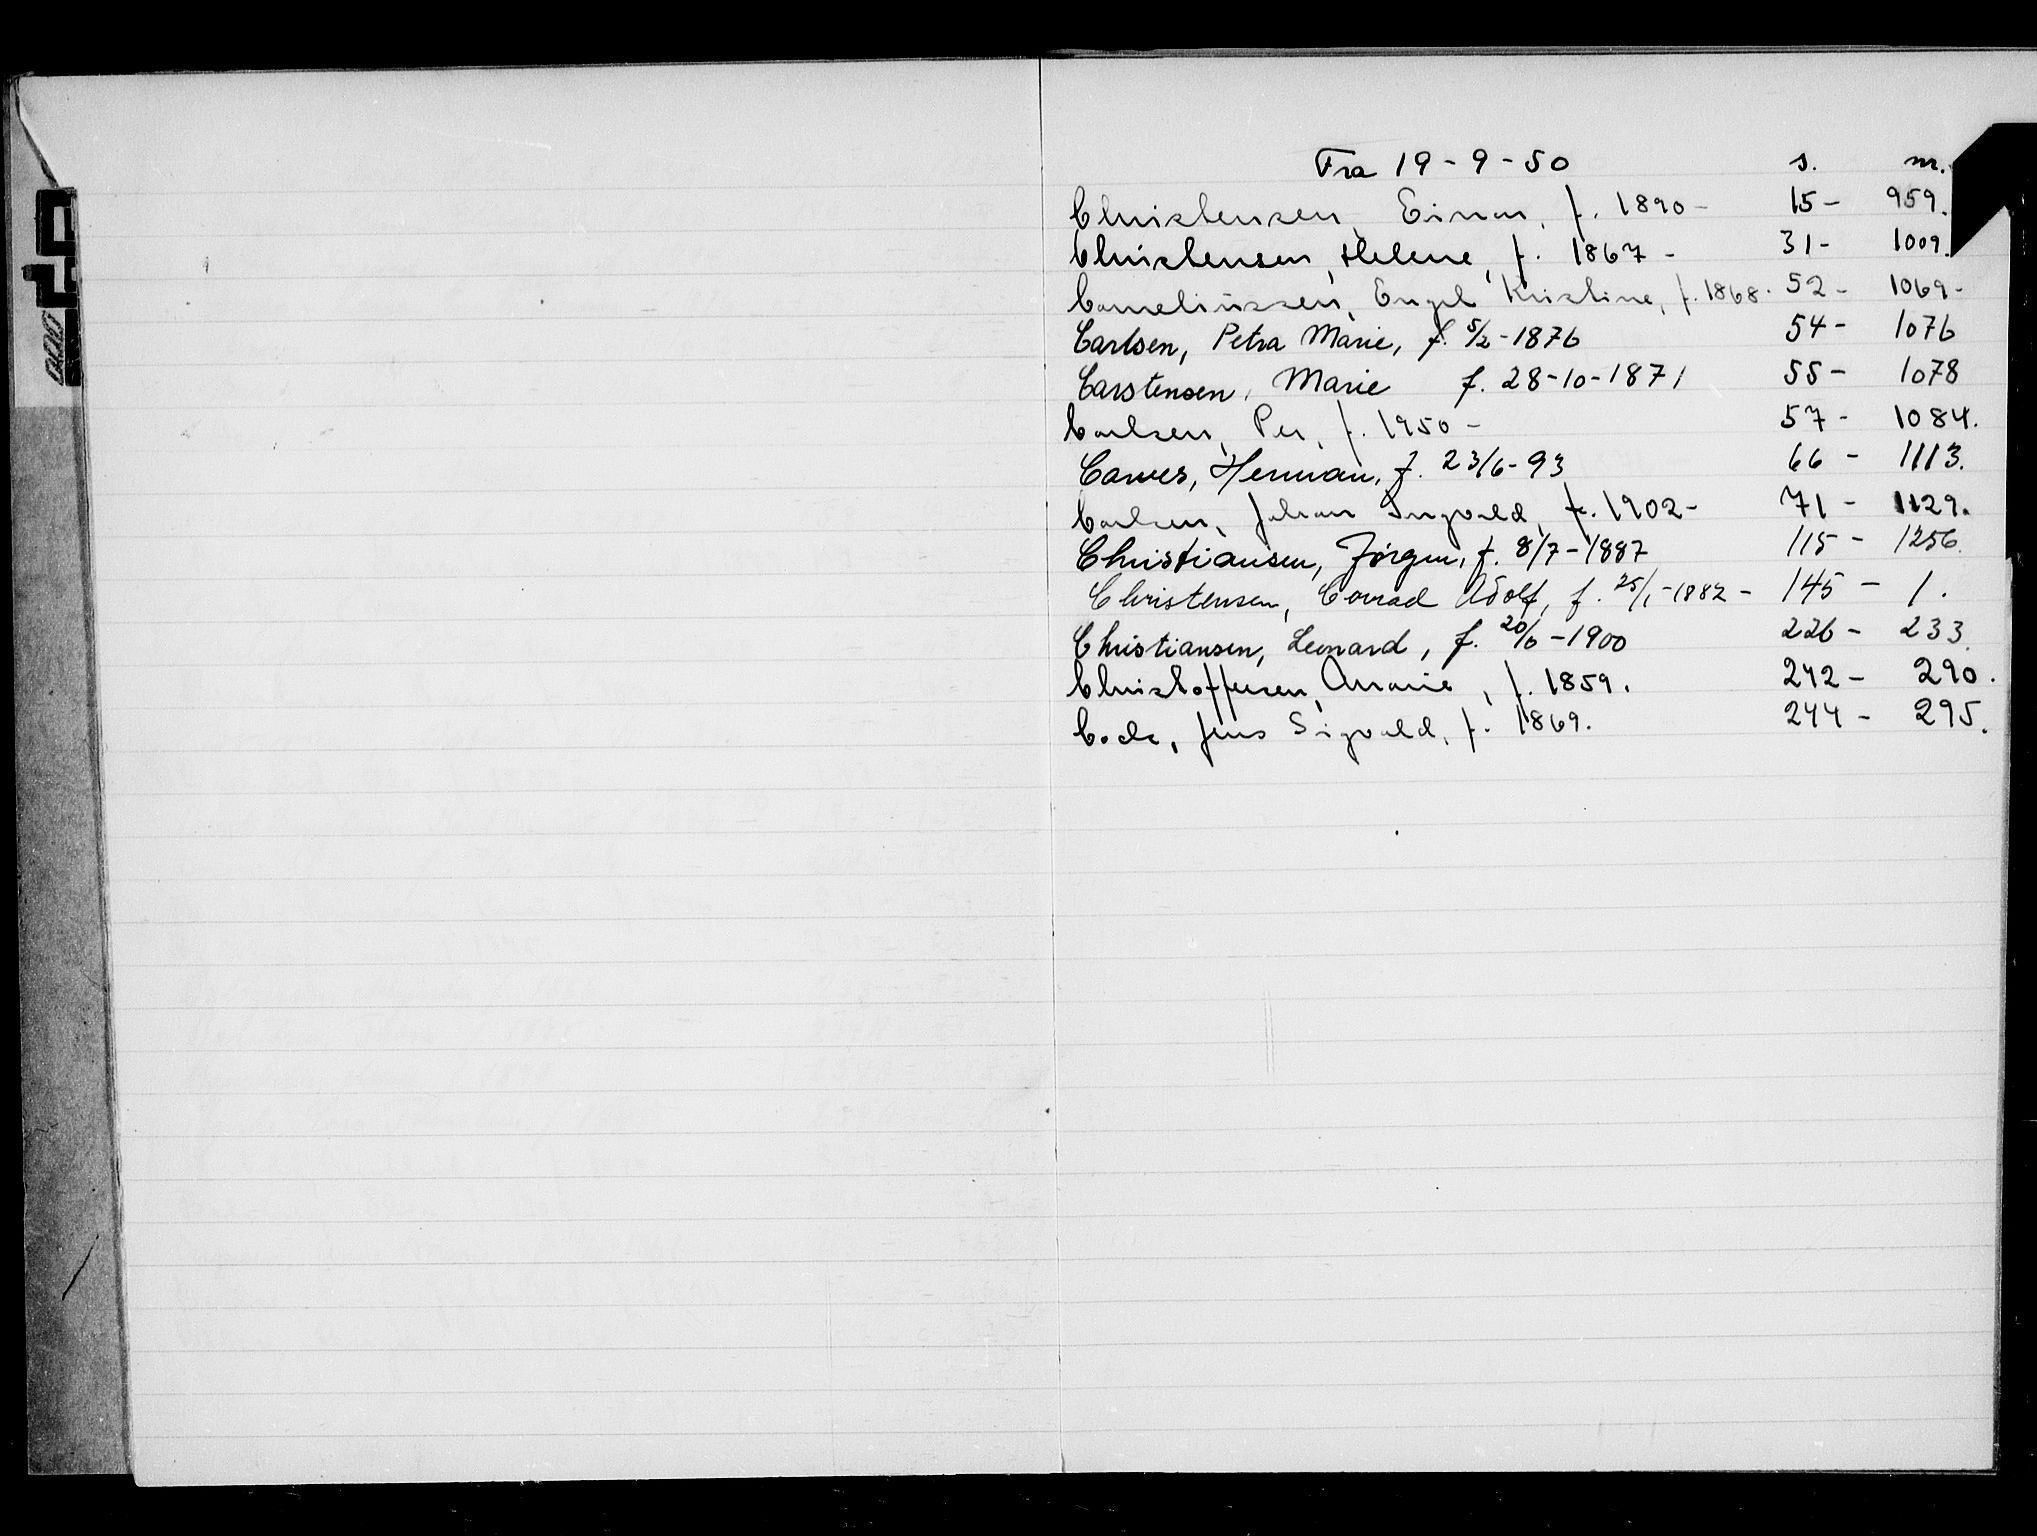 Fra 19-9-50 s. nr.
Christensen, Einar, f. 1890- 15- 959.
Christensen, Helene, f. 1867- 31- 1009.
Corneliussen, Engel Kristine, f. 1868. 52- 1069-
Carlsen, Petra Marie, f. 5/2-1876 54- 1076
Carstensen, Marie f. 28-10-1871 55- 1078
Carlsen, Per, f. 1950- 57- 1084.
Herman, f. 23/6-93 66- 1113.
Carlsen, Johan Ingvald, f. 1902- 71- 1129.
Christiansen, Jörgen, f. 8/7-1887 115- 1256.
Christensen, Conrad Adolf, f. 25/1-1882- 145- 1.
Christiansen, Leonard, f. 20/6-1900 226- 233.
Christoffersen, Marie, f. 1859. 242- 290.
Jens Sigvald, f. 1869. 244- 295.